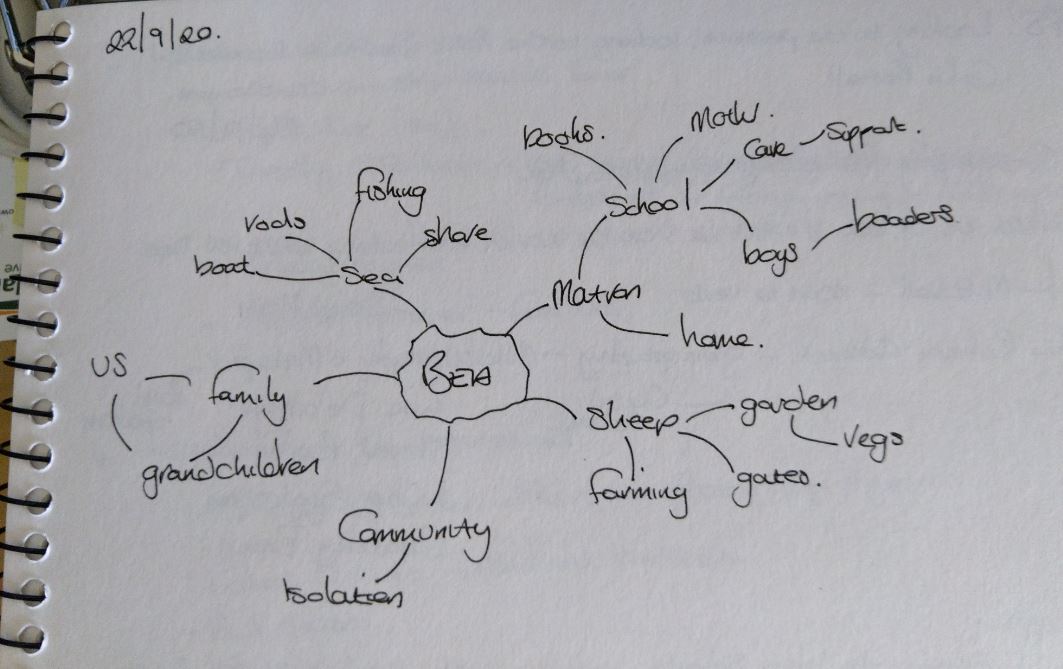 22/9/20.
books.
Moths.
Care
Support.
fishing
School
rods
shore
boys
boaders
boat
Sea
Matron
home.
US
family
BETA
Sheep
garden
Vegs
grandchildren
farming
gates.
Community
Isolation